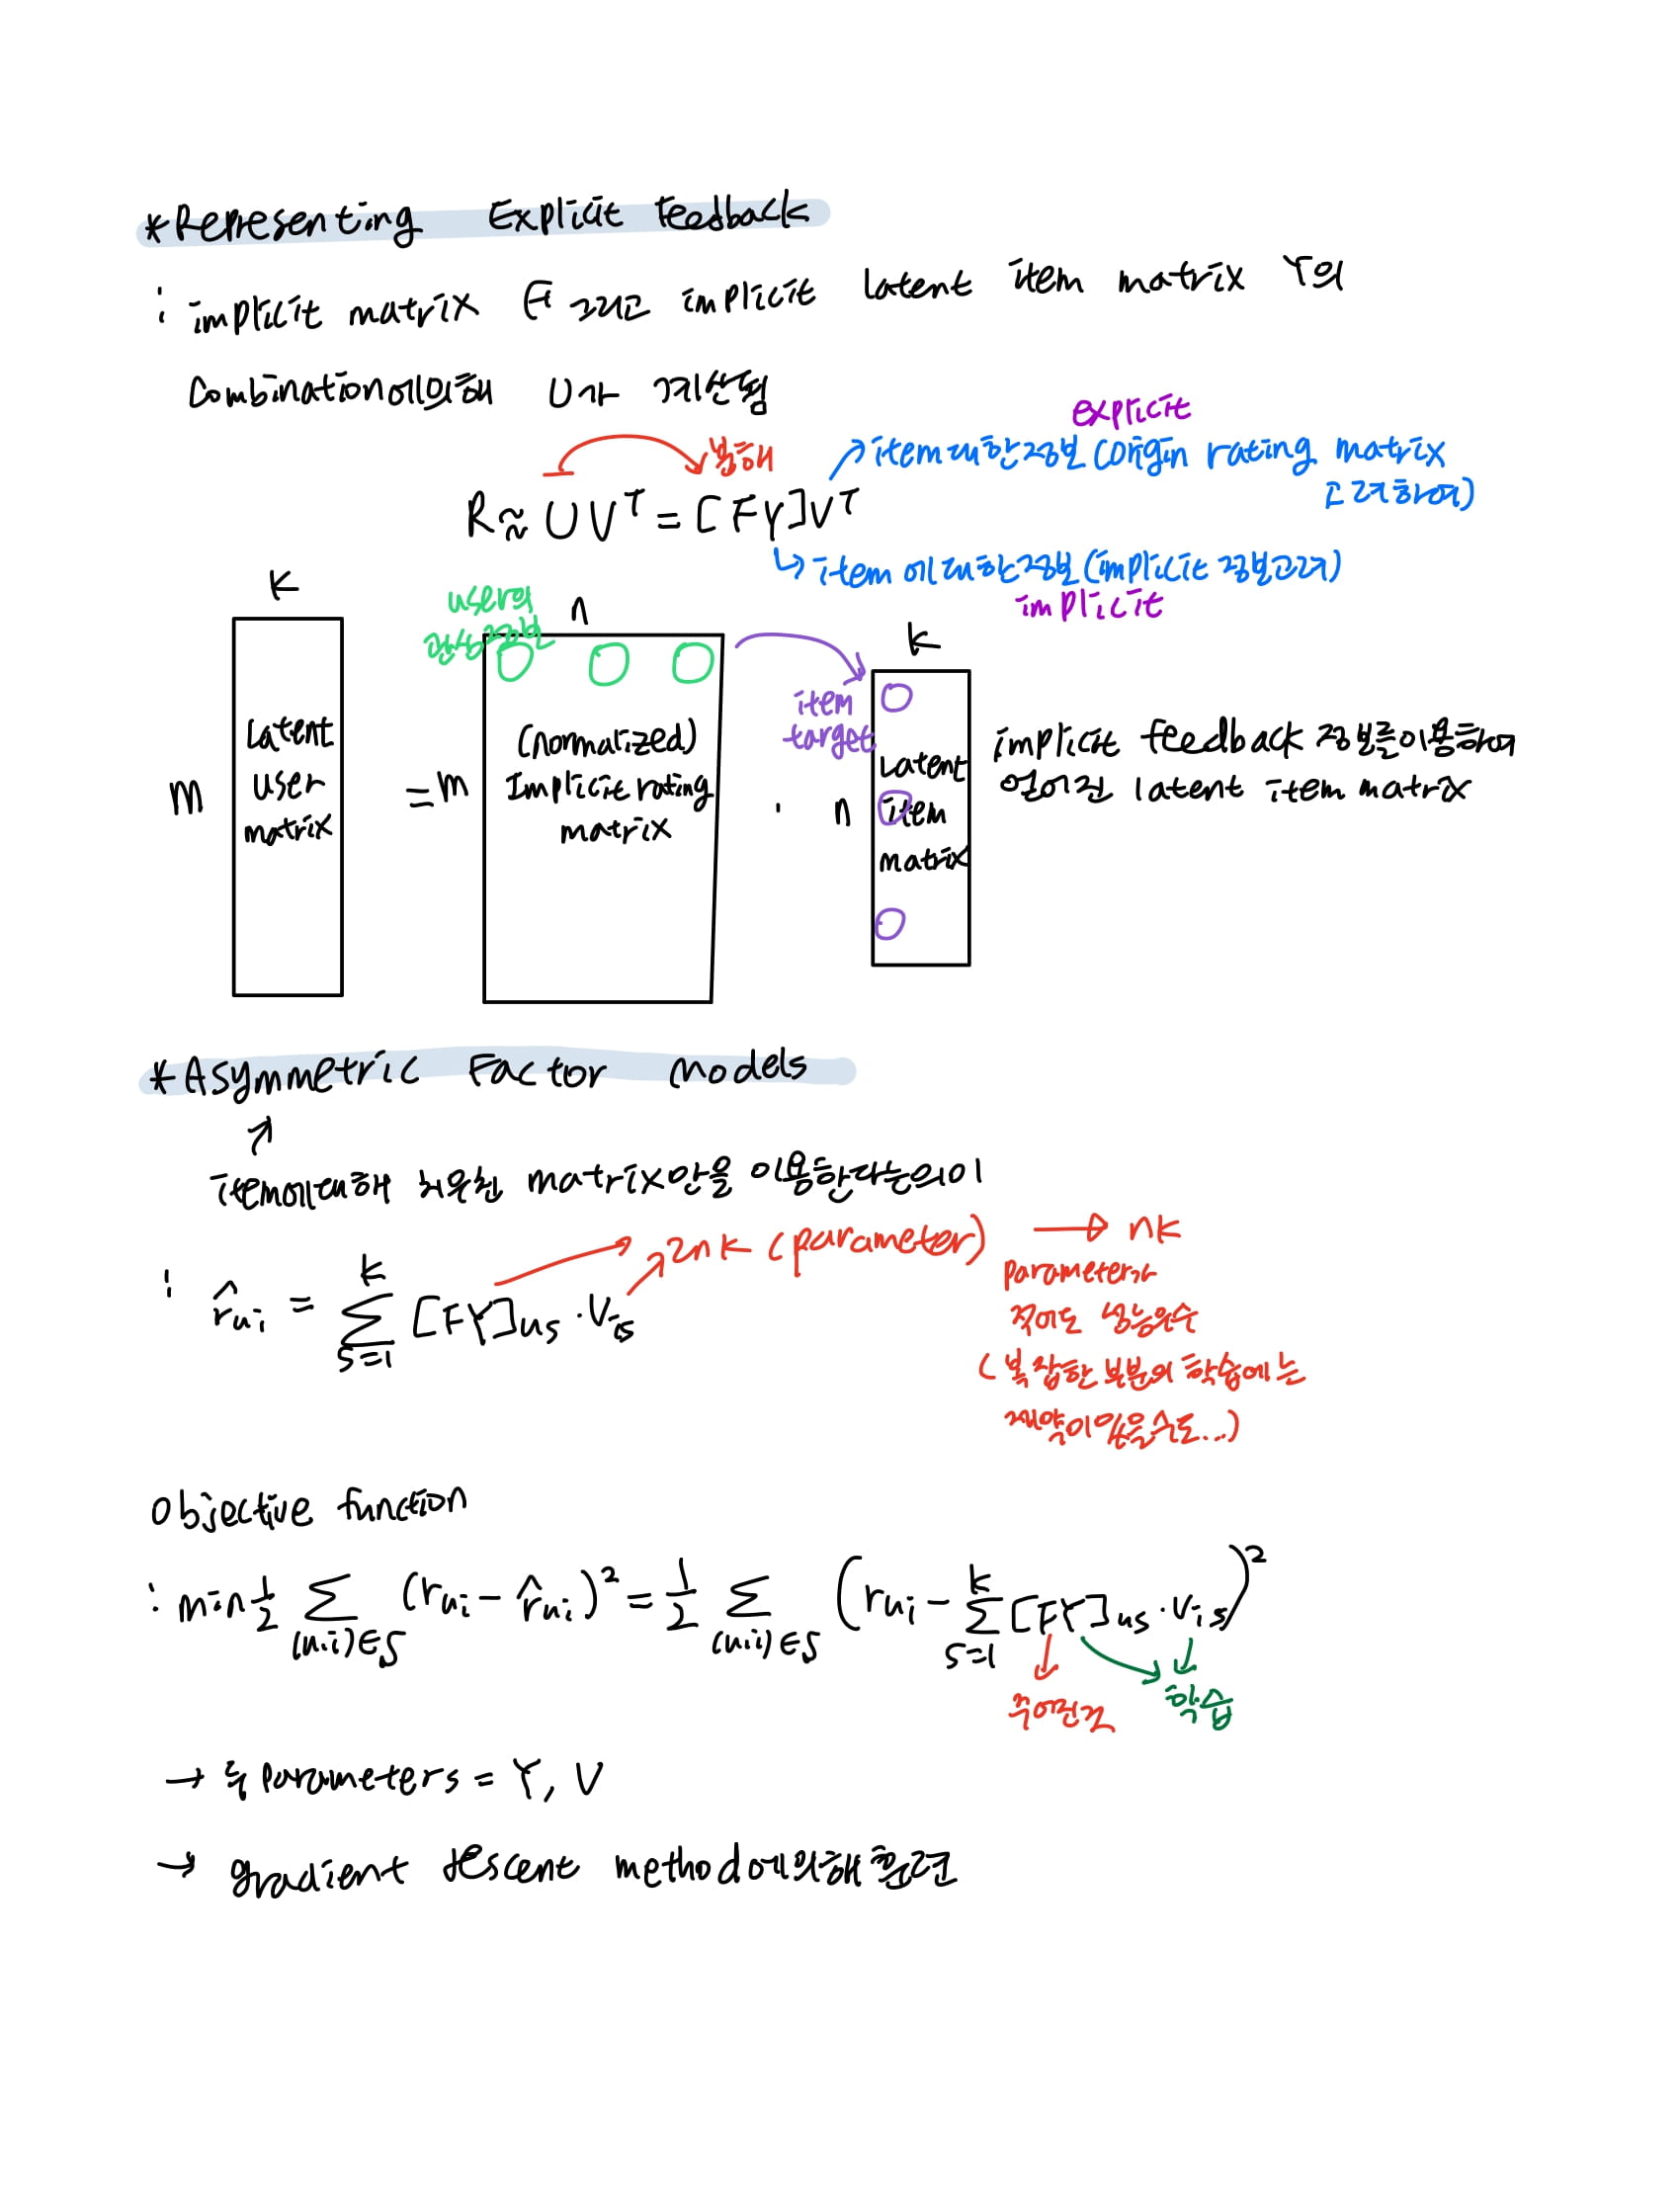 *Representing Explicit Feedback
: implicit matrix F 그리고 implicit latent item matrix Y의
Combination에의해 U가 계산됨
explicit
분해
item대한정보 (origin rating matrix
고려하여)
R ≈ UVᵀ = [FY]Vᵀ
item에대한정보(implicit 정보고려)
implicit
K
user의
관심정보
n
k
Latent
user
matrix
m
= m
(normalized)
Implicit rating
matrix
item
target
· n
Latent
item
matrix
implicit feedback 정보를이용하여
얻어진 latent item matrix
*Asymmetric Factor Models
item에대해 치우친 matrix만을 이용한다는의미
2nk (parameter) → nk
parameter가
적어도 성능우수
(복잡한 부분의 학습에는
제약이있을수도...)
: r̂ui = Σ_{s=1}^{k} [FY]us · Vis
Objective function
: min ½ Σ_{(u,i)∈S} (rui − r̂ui)² = ½ Σ_{(u,i)∈S} (rui − Σ_{s=1}^{k} [FY]us · Vis)²
주어진것
학습
→ 두 parameters = Y, V
→ gradient descent method에의해훈련